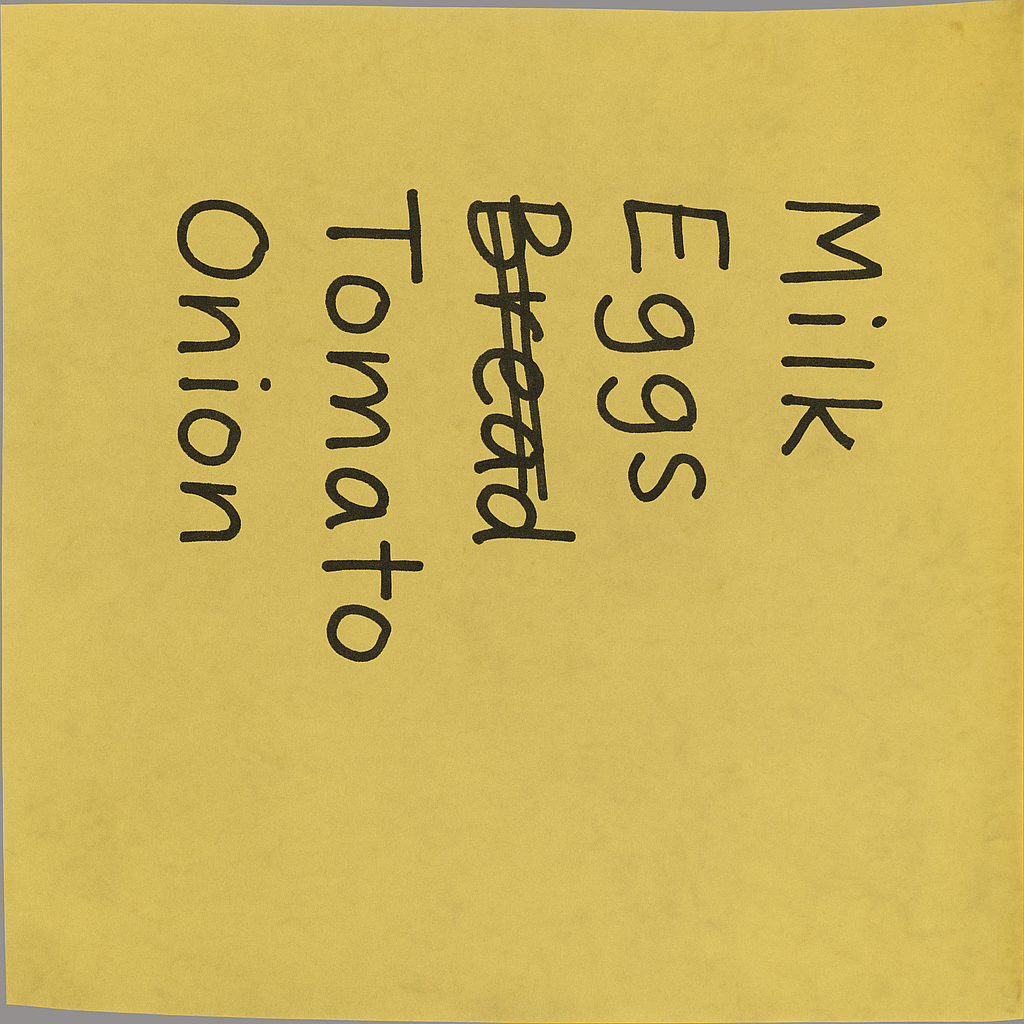 Milk
Eggs
Bread
Tomato
Onion